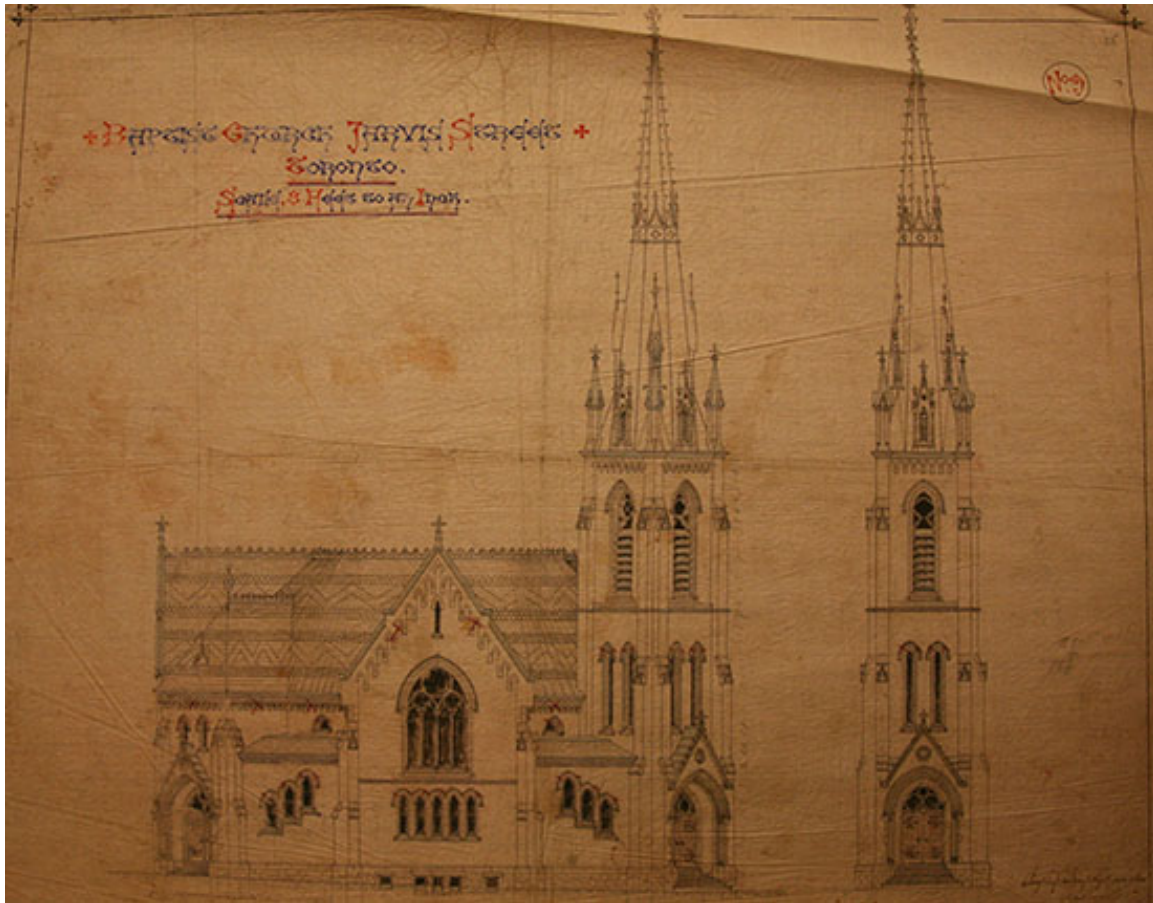 Baptist Church Jarvis Street
Toronto.
Scale, 8 Feet to an Inch.